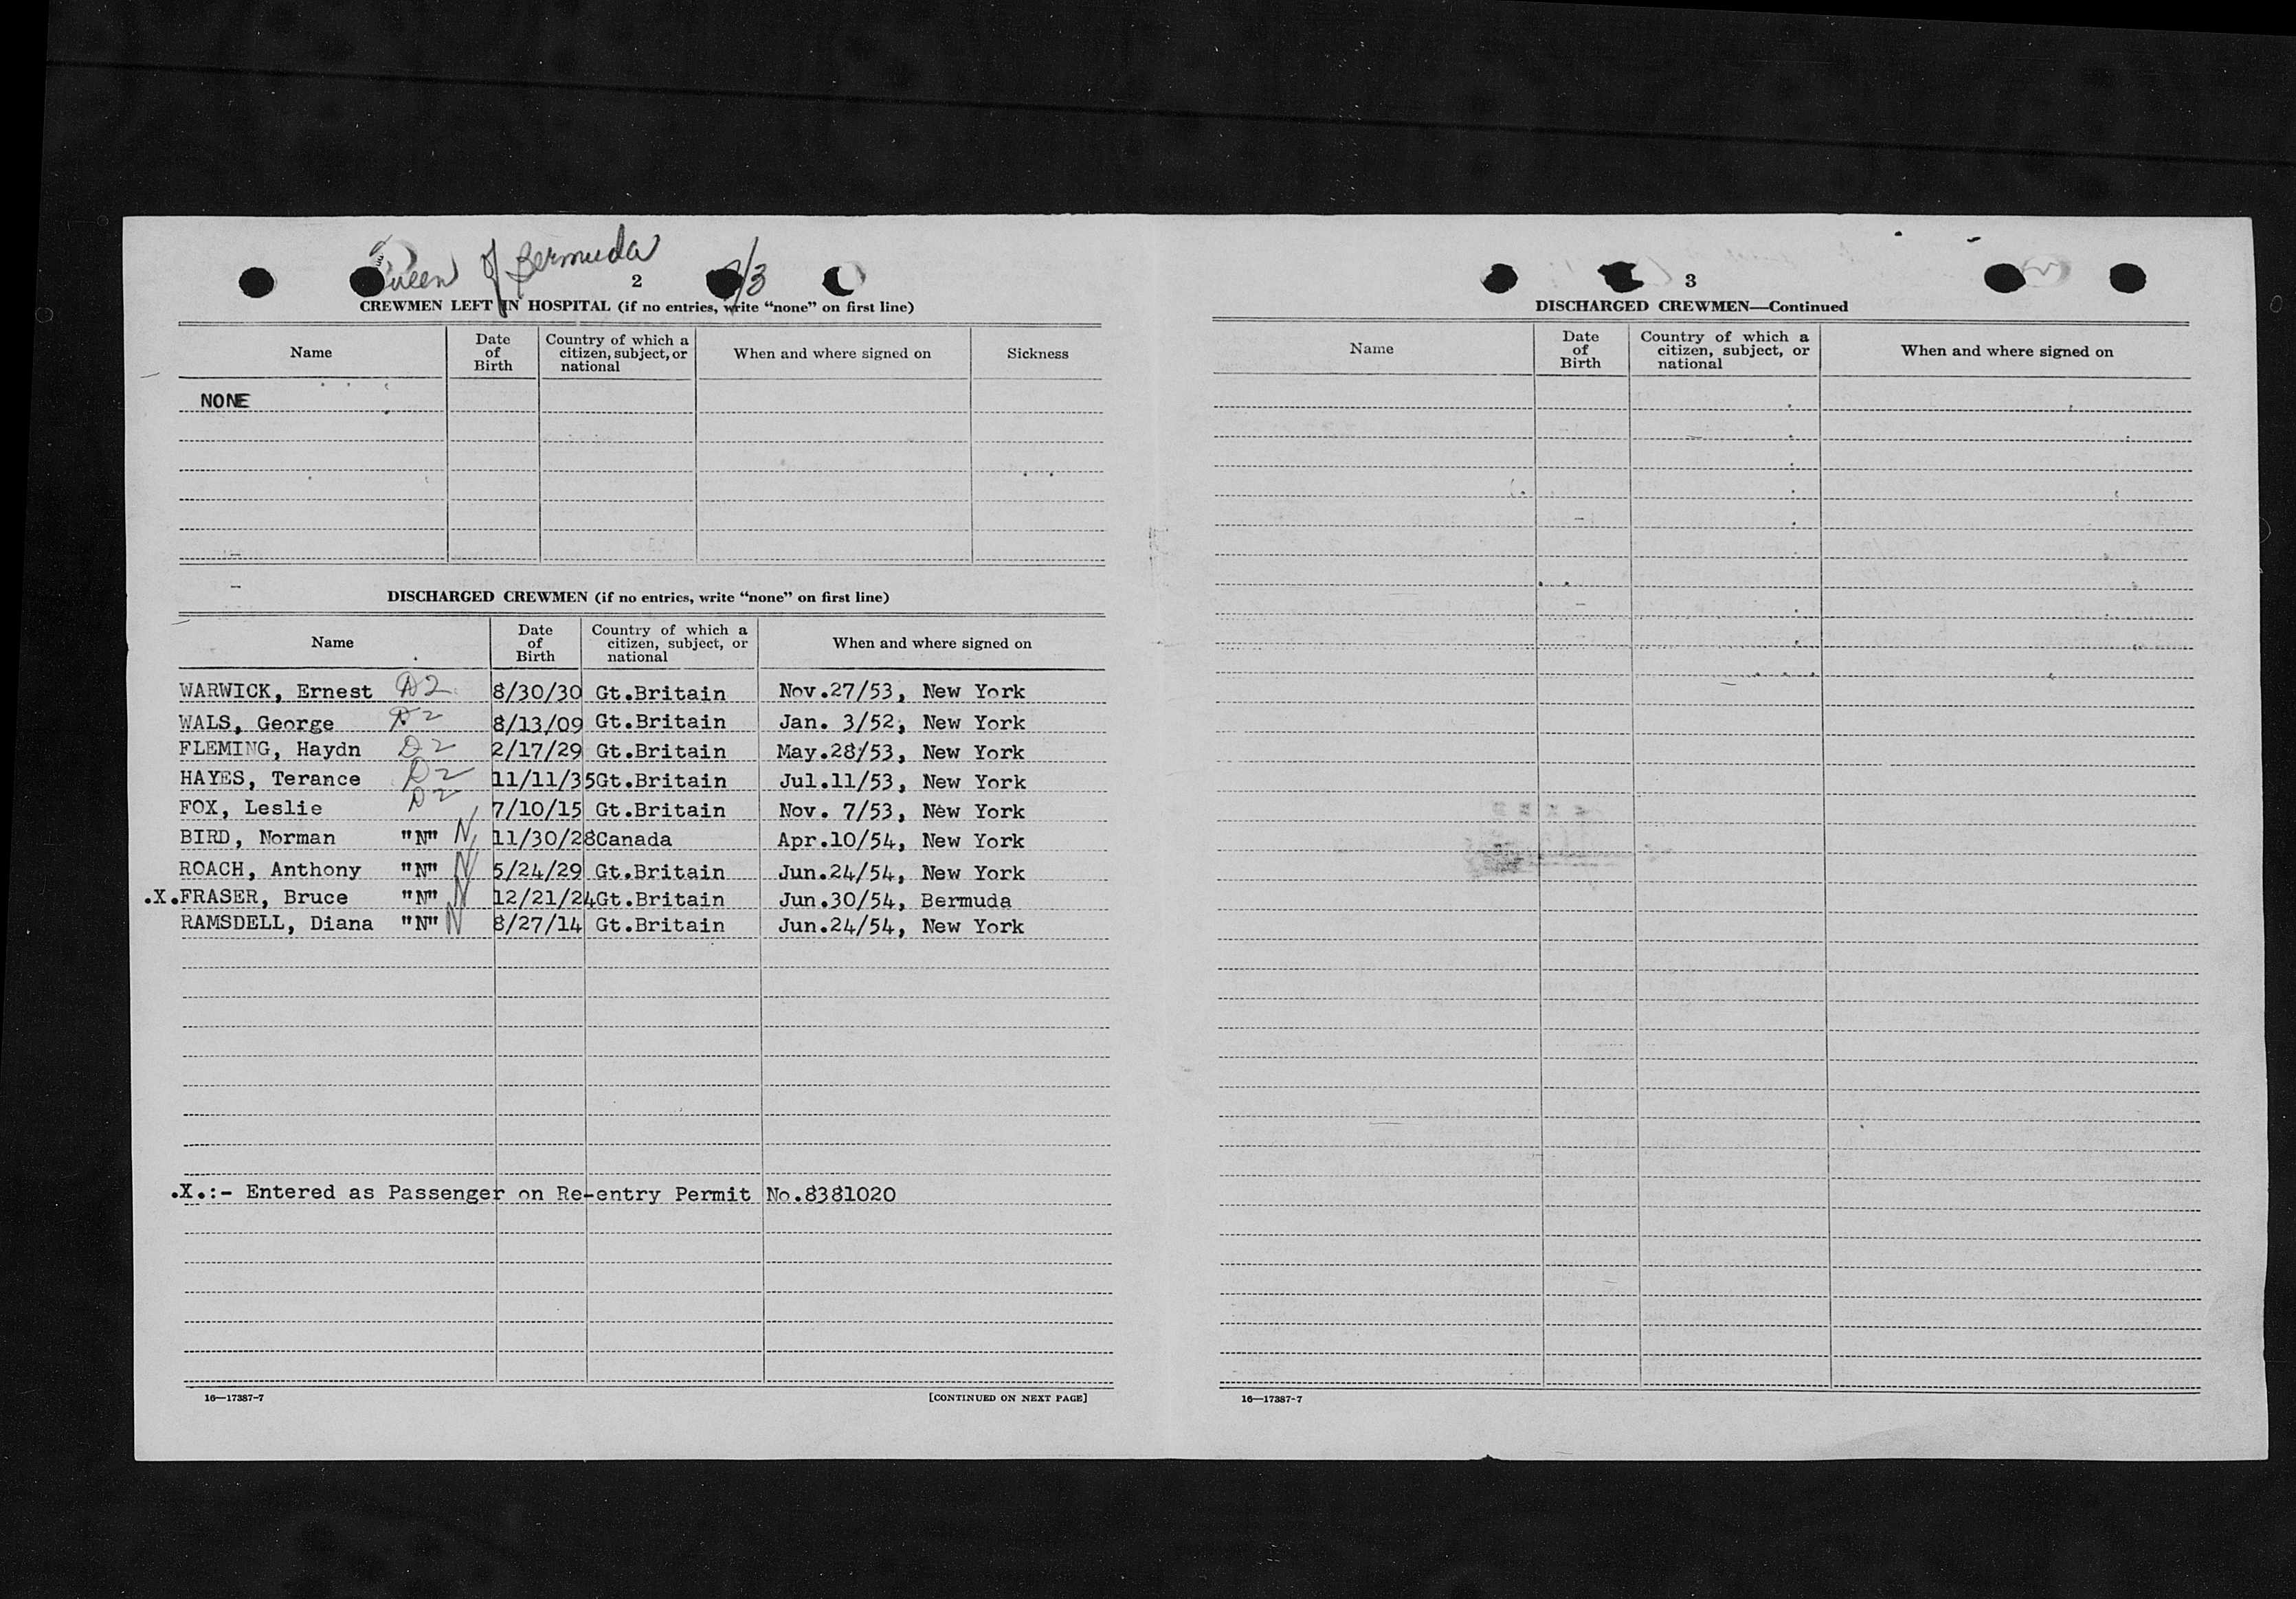 Queen of Bermuda /3
2
CREWMEN LEFT IN HOSPITAL (if no entries, write "none" on first line)
Name Date of Birth Country of which a citizen, subject, or national When and where signed on Sickness
NONE
DISCHARGED CREWMEN (if no entries, write "none" on first line)
Name Date of Birth Country of which a citizen, subject, or national When and where signed on
WARWICK, Ernest D2 8/30/30 Gt.Britain Nov.27/53, New York
WALS, George D2 8/13/09 Gt.Britain Jan. 3/52, New York
FLEMING, Haydn D2 2/17/29 Gt.Britain May.28/53, New York
HAYES, Terance D2 11/11/35 Gt.Britain Jul.11/53, New York
FOX, Leslie D2 7/10/15 Gt.Britain Nov. 7/53, New York
BIRD, Norman "N" N 11/30/28 Canada Apr.10/54, New York
ROACH, Anthony "N" N 5/24/29 Gt.Britain Jun.24/54, New York
.X.FRASER, Bruce "N" N 12/21/24 Gt.Britain Jun.30/54, Bermuda
RAMSDELL, Diana "N" N 8/27/14 Gt.Britain Jun.24/54, New York
.X.:- Entered as Passenger on Re-entry Permit No.8381020
16—17387-7 [CONTINUED ON NEXT PAGE]
3
DISCHARGED CREWMEN—Continued
Name Date of Birth Country of which a citizen, subject, or national When and where signed on
16—17387-7